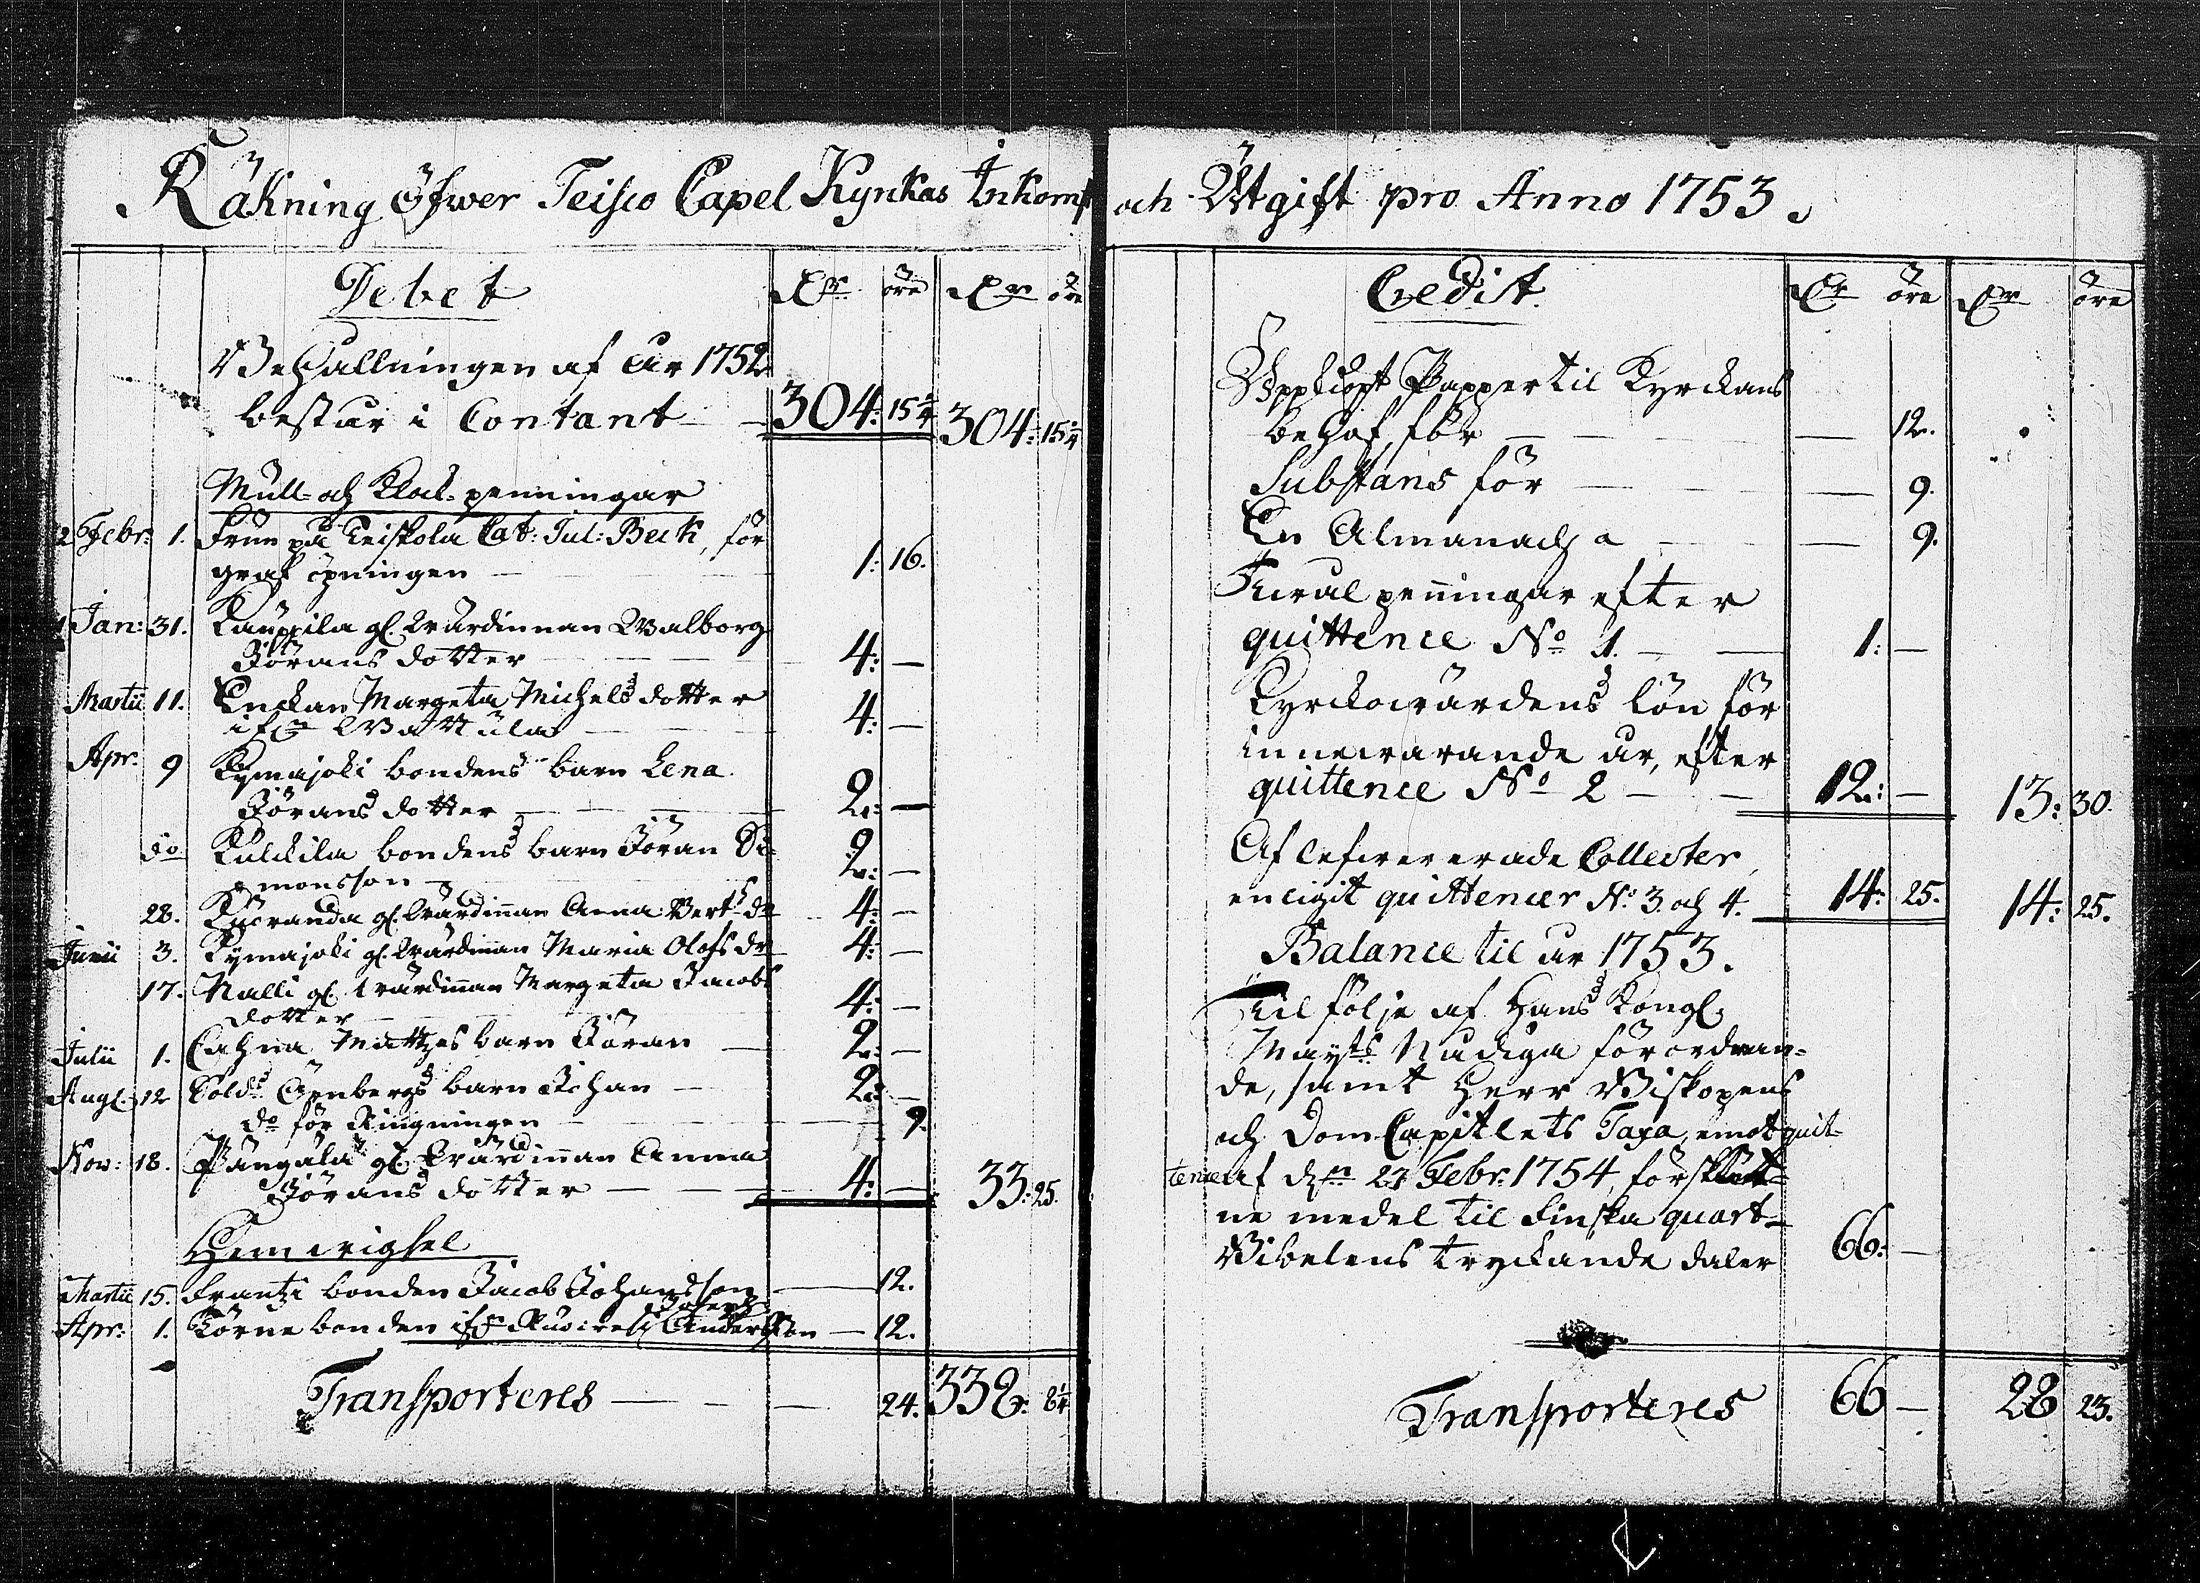 Räkning öfwer Teisko Capel Kyrckas Inkomst och Utgift pro Anno 1753.
Debet
öre
öre
Behållningen af år 1752
består i Contant 304: 15 1/4 304: 15 1/4
Mull- och Klock-penningar
Febr: 1. Frun på Keiskola Cat: Jul: Beck, för
graf öpningen 1: 16.
Jan: 31. Kauppila gl. Wärdinnan Walborg
Jörans dotter 4: —
Martii 11. Enckan Margeta Michels dotter
ifr: Wattula 4: —
Apr: 9 Kymajoki bondens barn Lena
Jörans dotter 2: —
do Kulckila bondens barn Jöran Si-
monsson 2: —
28. Kuoranda gl. Wärdinnan Anna Bert: dr 4: —
Junii 3. Kymajoki gl. Wärdinnan Maria Olofs dr 4: —
17. Nalli gl. Wärdinnan Margeta Jacobs
dotter 4: —
Julii 1. Mattzes barn Jöran 2: —
Aug. 12 Sold: Örnbergs barn Johan 2: —
do för Ringningen 9.
Nov: 18. Pängälä gl. Wärdinnan Anna
Jörans dotter 4: — 33: 25.
Hemwigsel
Martii 15. Frantzi bonden Jacob Johansson 12.
Apr: 1. Körne bonden ifr: Kuoreh: Andersson 12.
Transporteres 24. 338: 8 1/4
Credit
öre
öre
Uppkiöpt Papper til Kyrckans
behof för 12.
Substans för 9.
En Almanach a 9.
Cural penningar efter
quittence No 1. 1: —
Kyrckowärdens lön för
innewarande år, efter
quittence No 2 12: — 13: 30.
Aflefwererade Collecter,
enligit quittencer No 3 och 4. 14: 25. 14: 25.
Balance til år 1753.
Til följe af Hans Kongl.
Mayts Nådiga förordnan-
de, samt Herr Biskopens
och Dom Capitlets Taxa, emot quit-
tence af den 27 Febr: 1754, förskutt-
ne medel til Finska quart-
Bibelens tryckande daler 66: —
Transporteres 66 — 28 23.